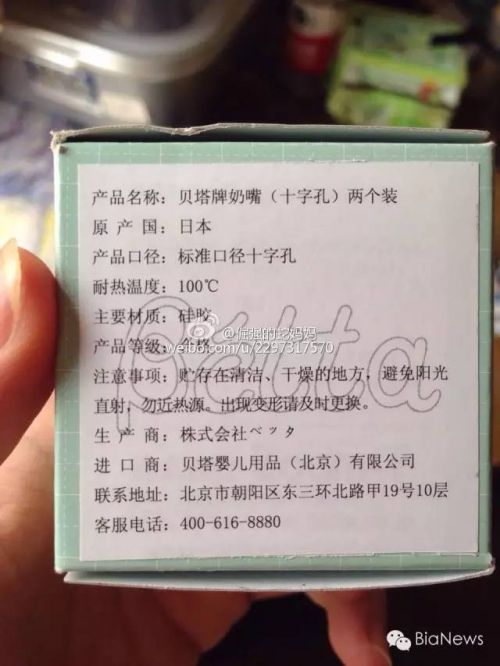 产品名称：贝塔牌奶嘴（十字孔）两个装
原产国：日本
产品口径：标准口径十字孔
耐热温度：100℃
主要材质：硅胶
@倔强的蛇妈妈
产品等级：合格
weibo.com/u/2297317570
注意事项：贮存在清洁、干燥的地方，避免阳光
直射，勿近热源。出现变形请及时更换。
Bétta
生产商：株式会社ベッタ
进口商：贝塔婴儿用品（北京）有限公司
联系地址：北京市朝阳区东三环北路甲19号10层
客服电话：400-616-8880
BiaNews